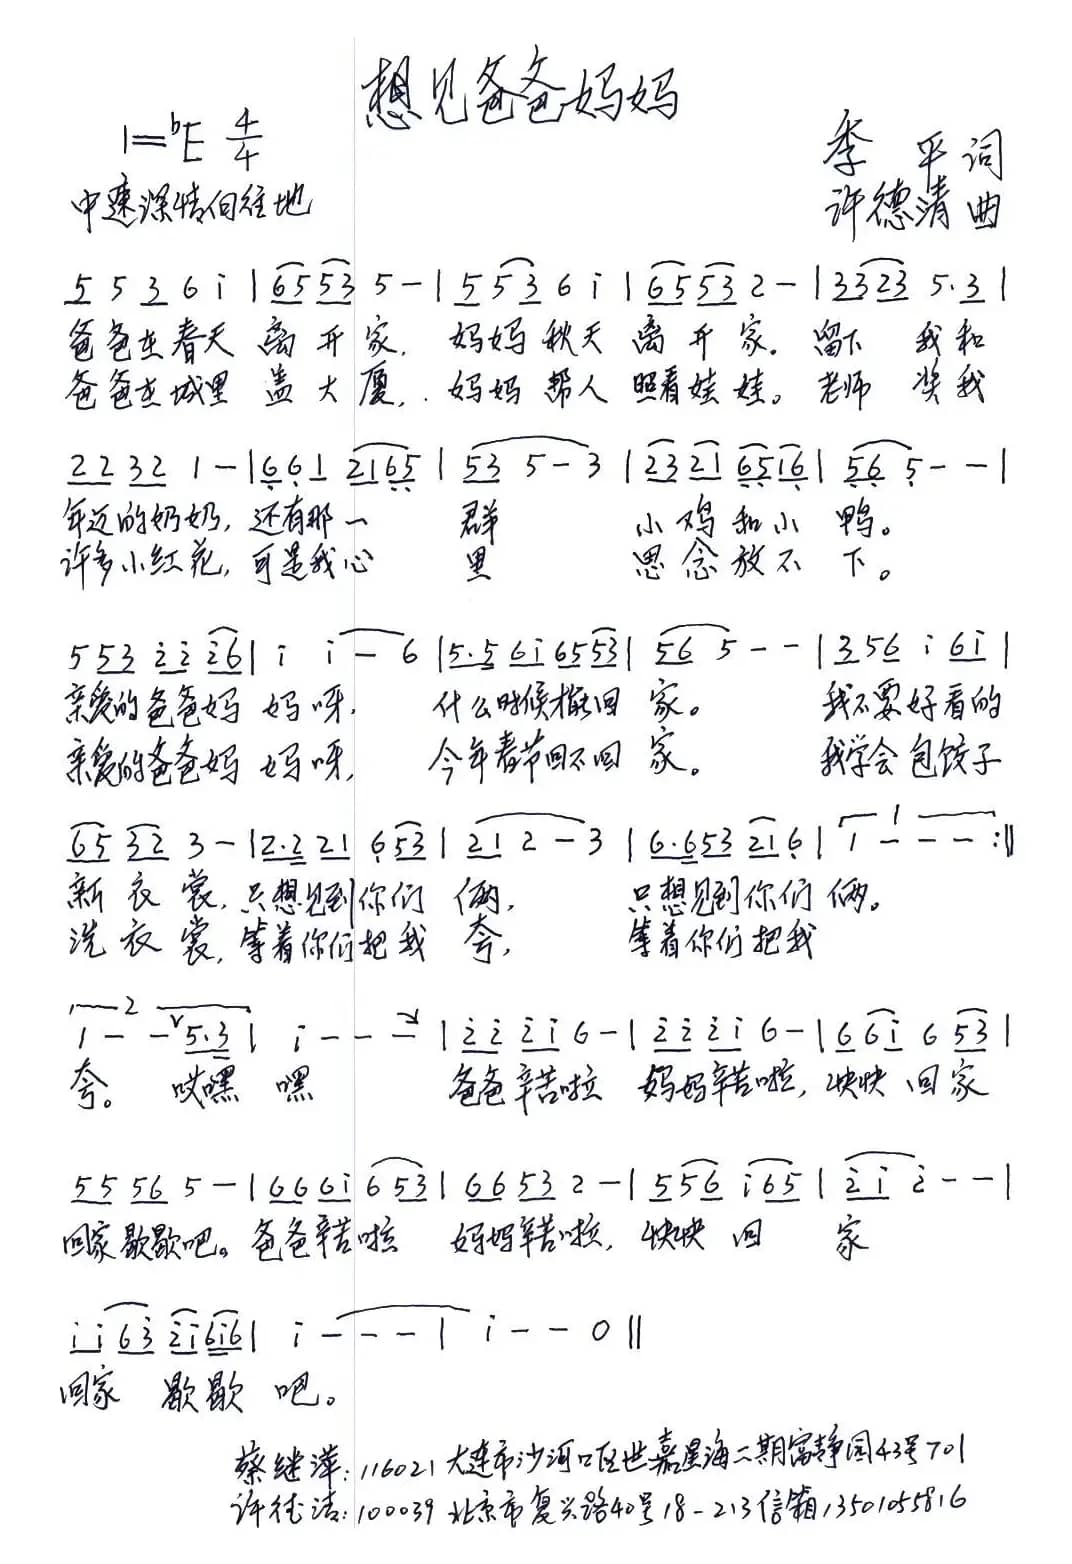 想见爸爸妈妈
1=♭E 4/4
季 平 词
中速深情向往地
许德清 曲
5 5 3 6 i | 6553 5 - | 5 5 3 6 i | 6553 2 - | 3323 5· 3 |
爸爸在春天 离 开 家, 妈妈秋天 离 开 家。留下 我和
爸爸在城里 盖 大 厦, 妈妈帮人 照看娃娃。老师 奖我
22 32 1 - | 6 6 1 2165 | 53 5 - 3 | 2321 6516 | 56 5 - - |
年迈的奶奶, 还有那一 群 小鸡和小 鸭。
许多小红花, 可是我心 里 思念放不 下。
5 53 ii i6 | i i - 6 | 5·5 6i 6553 | 56 5 - - | 3 56 i 6i |
亲爱的爸爸妈 妈呀, 什么时候才能回 家。 我不要好看的
亲爱的爸爸妈 妈呀, 今年春节回不回 家。 我学会包饺子
65 32 3 - | 2·2 21 6 53 | 21 2 - 3 | 6·653 216 | 1 1 - - - :||
新 衣 裳, 只想见到你们 俩, 只想见到你们 俩。
洗 衣 裳, 等着你们把我 夸, 等着你们把我
2
1 - - 5·3 | i - - - | 2 2 2 i 6 - | 2 2 2 i 6 - | 6 6i 6 53 |
夸。 哎嘿 嘿 爸爸辛苦啦 妈妈辛苦啦, 快快 回家
55 56 5 - | 66 6i 6 53 | 66 53 2 - | 5 56 i 65 | 2 i 2 - - |
回家歇歇吧。爸爸辛苦啦 妈妈辛苦啦, 快快 回 家
i i 63 2i6i6 | i - - - | i - - 0 ||
回家 歇歇 吧。
蔡继萍: 116021 大连市沙河口区世嘉星海二期富静园43号701
许德清: 100039 北京市复兴路40号18-213信箱13501055816